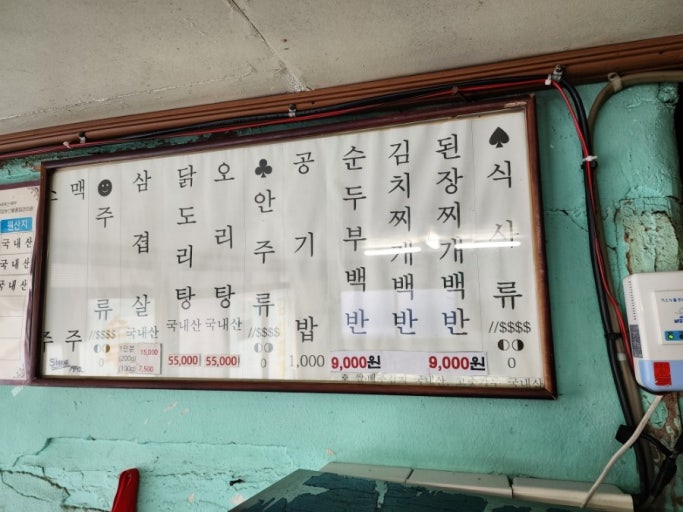 ♠식사류
//$$$$
0
된장찌개백반
9,000원
김치찌개백반
순두부백반
9,000원
공기밥
1,000
♣안주류
//$$$$
0
오리탕
국내산
55,000
닭도리탕
국내산
55,000
삼겹살
국내산
(200g) 15,000
(100g) 7,500
☻주류
//$$$$
0
맥주
주
원산지
국내산
국내산
국내산
국내산
국내산